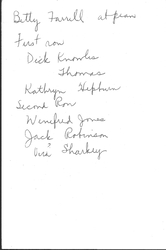 Betty Farrell at piano
First row
Dick Knowles
Thomas
Kathryn Hepburn
Second Row
Winifred Jones
Jack Robinson
Sharkey